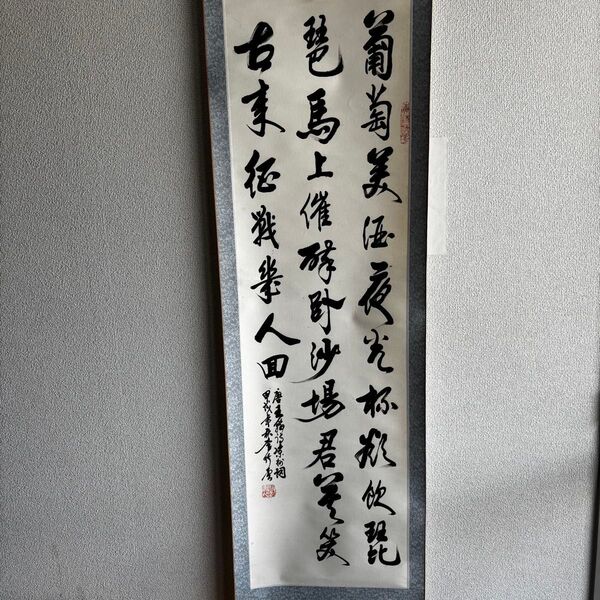 葡萄美酒夜光杯欲飲琵
琶馬上催醉臥沙場君莫笑
古来征戰幾人回
唐王翰詩涼州詞
甲戌年